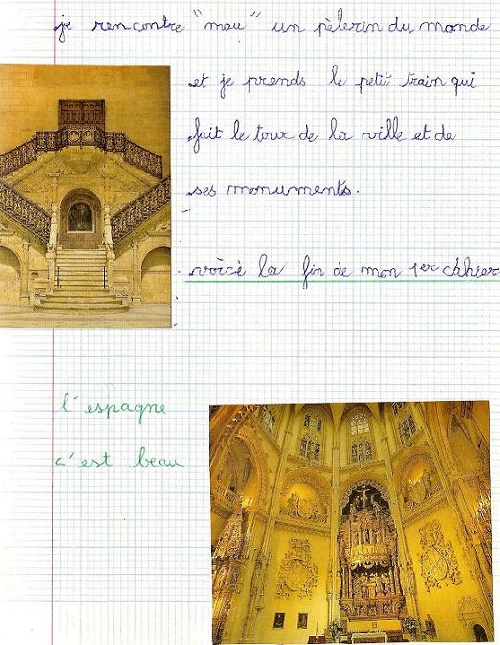 je rencontre "mau" un pèlerin du monde
et je prends le petit train qui
fait le tour de la ville et de
ses monuments.
voici la fin de mon 1er cahier
l'espagne
c'est beau